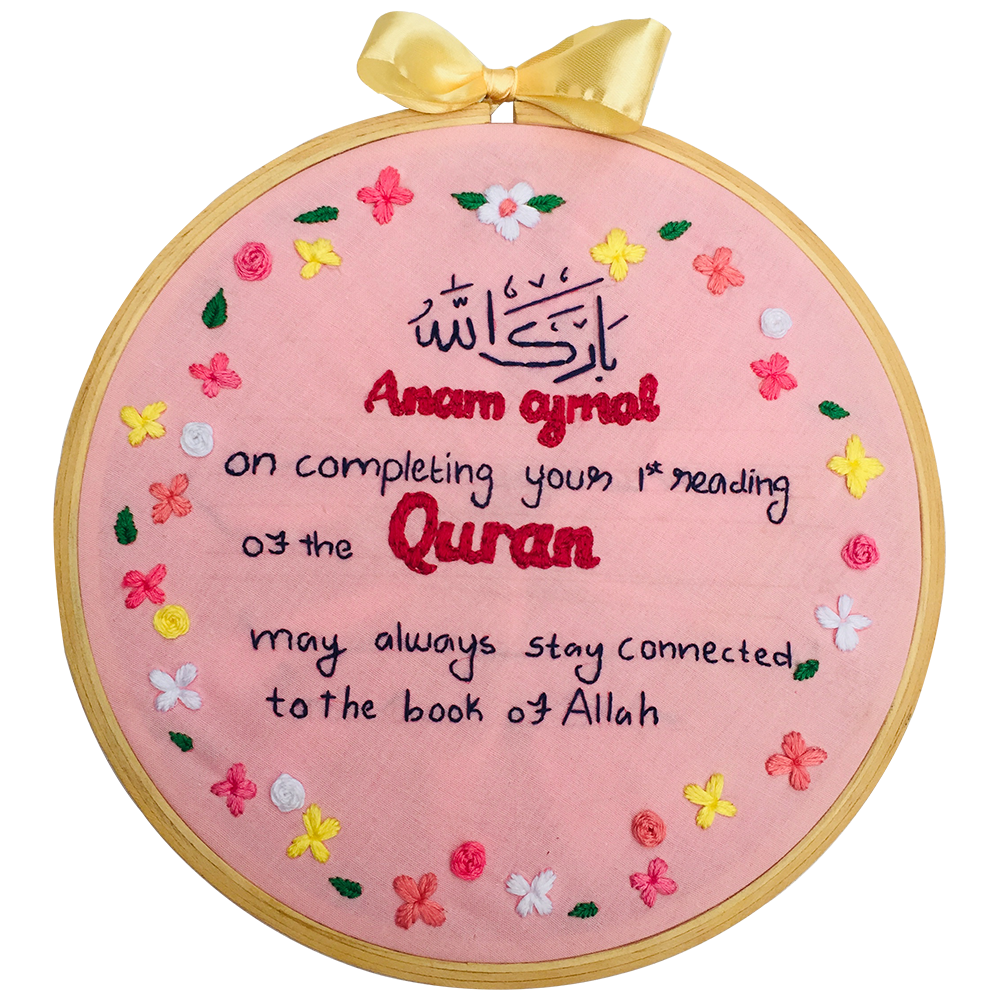 بارك الله
Anam ajmal
on completing your 1st reading
of the Quran
may always stay connected
to the book of Allah